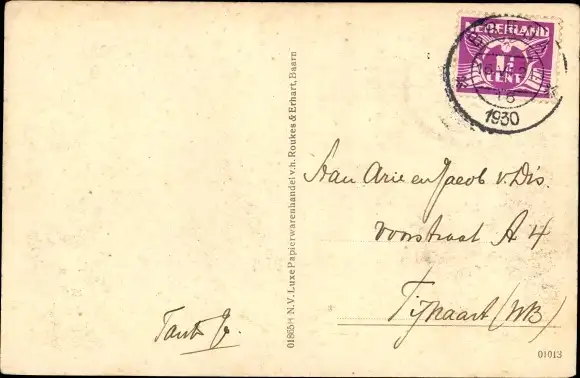 NEDERLAND
1½
CENT
16
1930
Aan Arie en Jacob v. Dis.
Voorstraat A 4
Fijnaart (NB)
Tante J.
01865H N.V. Luxe Papierwarenhandel v.h. Roukes & Erhart, Baarn
01013